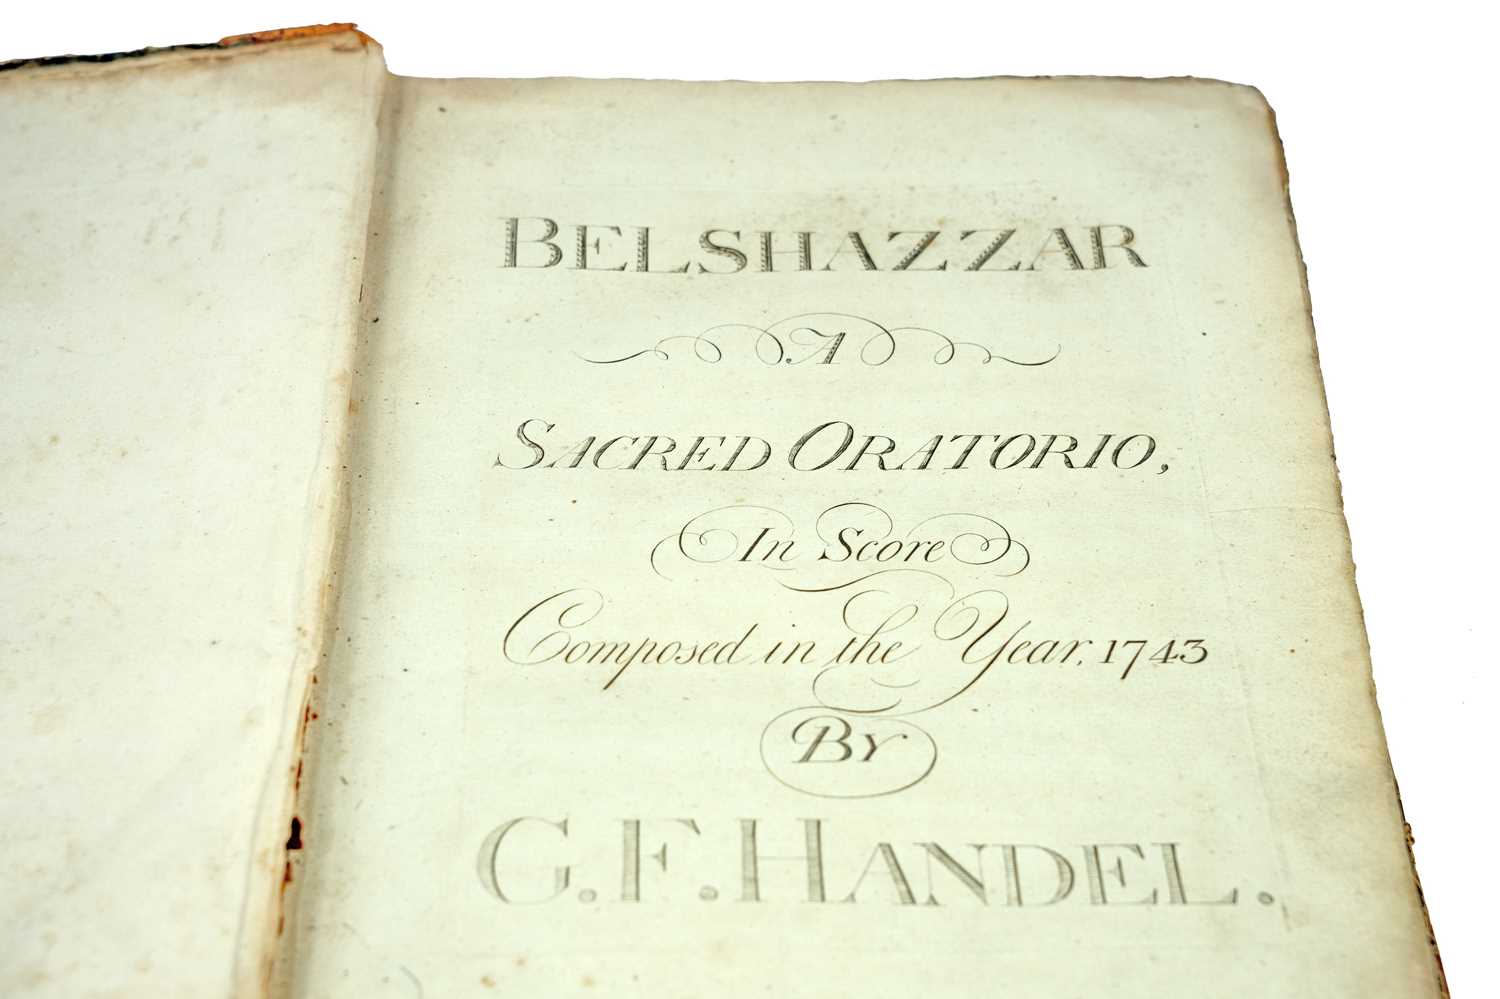 BELSHAZZAR
A
SACRED ORATORIO,
In Score
Composed in the Year, 1743
BY
G. F. HANDEL.